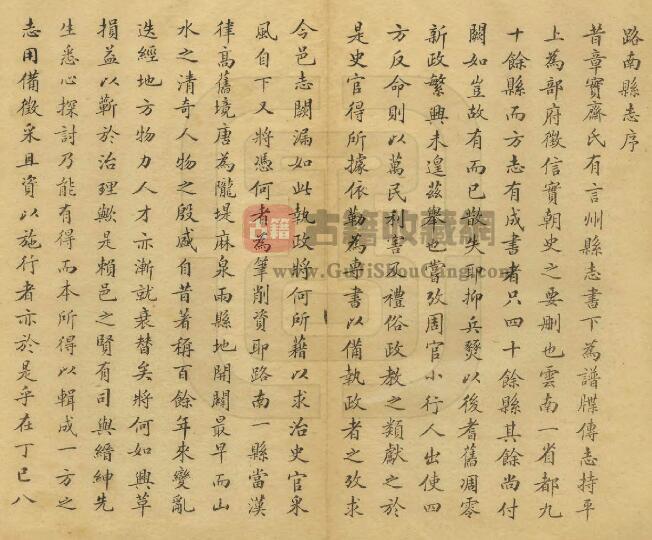 路南縣志序
昔章實齋氏有言州縣志書下為譜牒傳志持平
上為部府徵信實朝史之要刪也雲南一省都九
十餘縣而方志有成書者只四十餘縣其餘尚付
闕如豈故有而已散失耶抑兵燹以後耆舊凋零
新政繁興未遑茲舉也嘗攷周官小行人出使四
方反命則以萬民利害及禮俗政教之類獻之於
是史官得所據依勒為專書以備執政者之攷求
今邑志闕漏如此執政將何所藉以求治史官采
風自下又將憑何者為筆削資耶路南一縣當漢
律高舊境唐為隴堤麻泉兩縣地開闢最早而山
水之清奇人物之殷盛自昔著稱百餘年來變亂
迭經地方物力人才亦漸就衰替矣將何如興草
損益以蘄於治理歟是賴邑之賢有司與縉紳先
生悉心探討乃能有得而本所得以輯成一方之
志用備徵采且資以施行者亦於是乎在丁巳八
古籍 古籍收藏網
www.GuJiShouCang.com